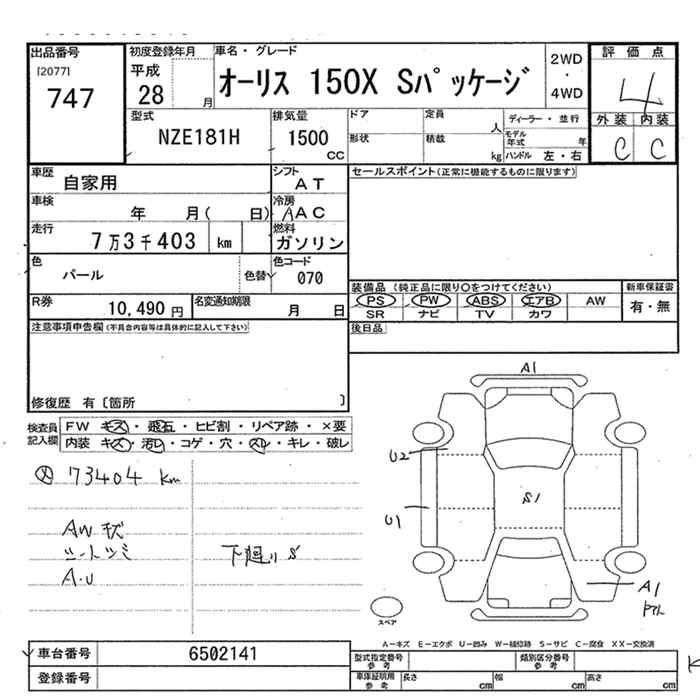 出品番号 初度登録年月 車名・グレード 評価点
[2077] 747
平成 28 月 オーリス 150X Sパッケージ 2WD ・ 4WD 4
型式 NZE181H 排気量 1500 CC
ドア 定員 人 ディーラー・並行 外装 内装
形状 積載 kg モデル年式 年 ハンドル 左・右 C C
車歴 自家用 シフト AT セールスポイント(正常に機能するものに限ります)
車検 年 月( 日) 冷房 AAC
走行 7万3千403 km 燃料 ガソリン
色 パール 色替 色コード 070
装備品 (純正品に限り○をつけてください) 新車保証書
PS PW ABS エアB AW 有・無
SR ナビ TV カワ
R券 10,490円 名変通知期限 月 日
注意事項申告欄(不具合内容等は具体的に記入して下さい) 後日品
修復歴 有〔箇所 〕
検査員記入欄 FW キズ・飛石・ヒビ割・リペア跡・×要
内装 キズ・汚レ・コゲ・穴・スレ・キレ・破レ
73404 km
AW キズ
シートシミ
A.U
下廻り S
A1
U2
S1
U1
A1
スペア
A−キズ E−エクボ U−凹み W−補修跡 S−サビ C−腐食 XX−交換済
車台番号 6502141 型式指定番号 参考 類別区分番号 参考
登録番号 車庫証明用 参考 長さ cm 幅 cm 高さ cm